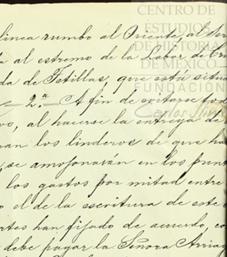 linea rumbo al Oriente, al
al estremo de la
da de Totillas, que está situa
2.ª — A fin de evitarse tod
vo, al hacerse la entrega de
ran los linderos de que ha
, se amojonarán en los punt
los gastos por mitad entre
o el de la escritura de este
rtes han fijado de acuerdo, co
debe pagar la Señora Arriag
CENTRO DE
ESTUDIOS
DE HISTORIA
DE MÉXICO
FUNDACIÓN
Carlos Slim